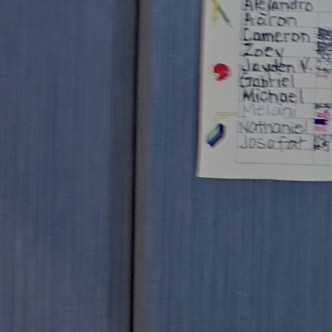 Alejandro
Aaron
Cameron
Zoey
Jayden V.
Gabriel
Michael
Melani
Nathaniel
Josafat